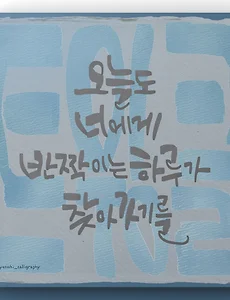 오늘도
너에게
반짝이는 하루가
찾아가기를